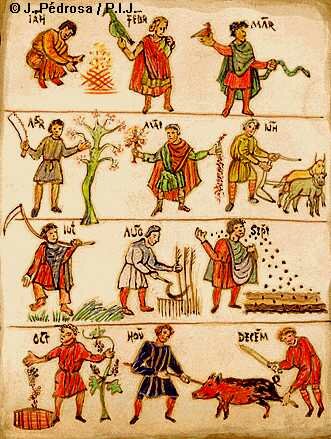 © J. Pédrosa / P.I.J.
IAH FEBR MĀR
APR MAI IVH
IUL AUG SEPT
OCT HOU DECĒM